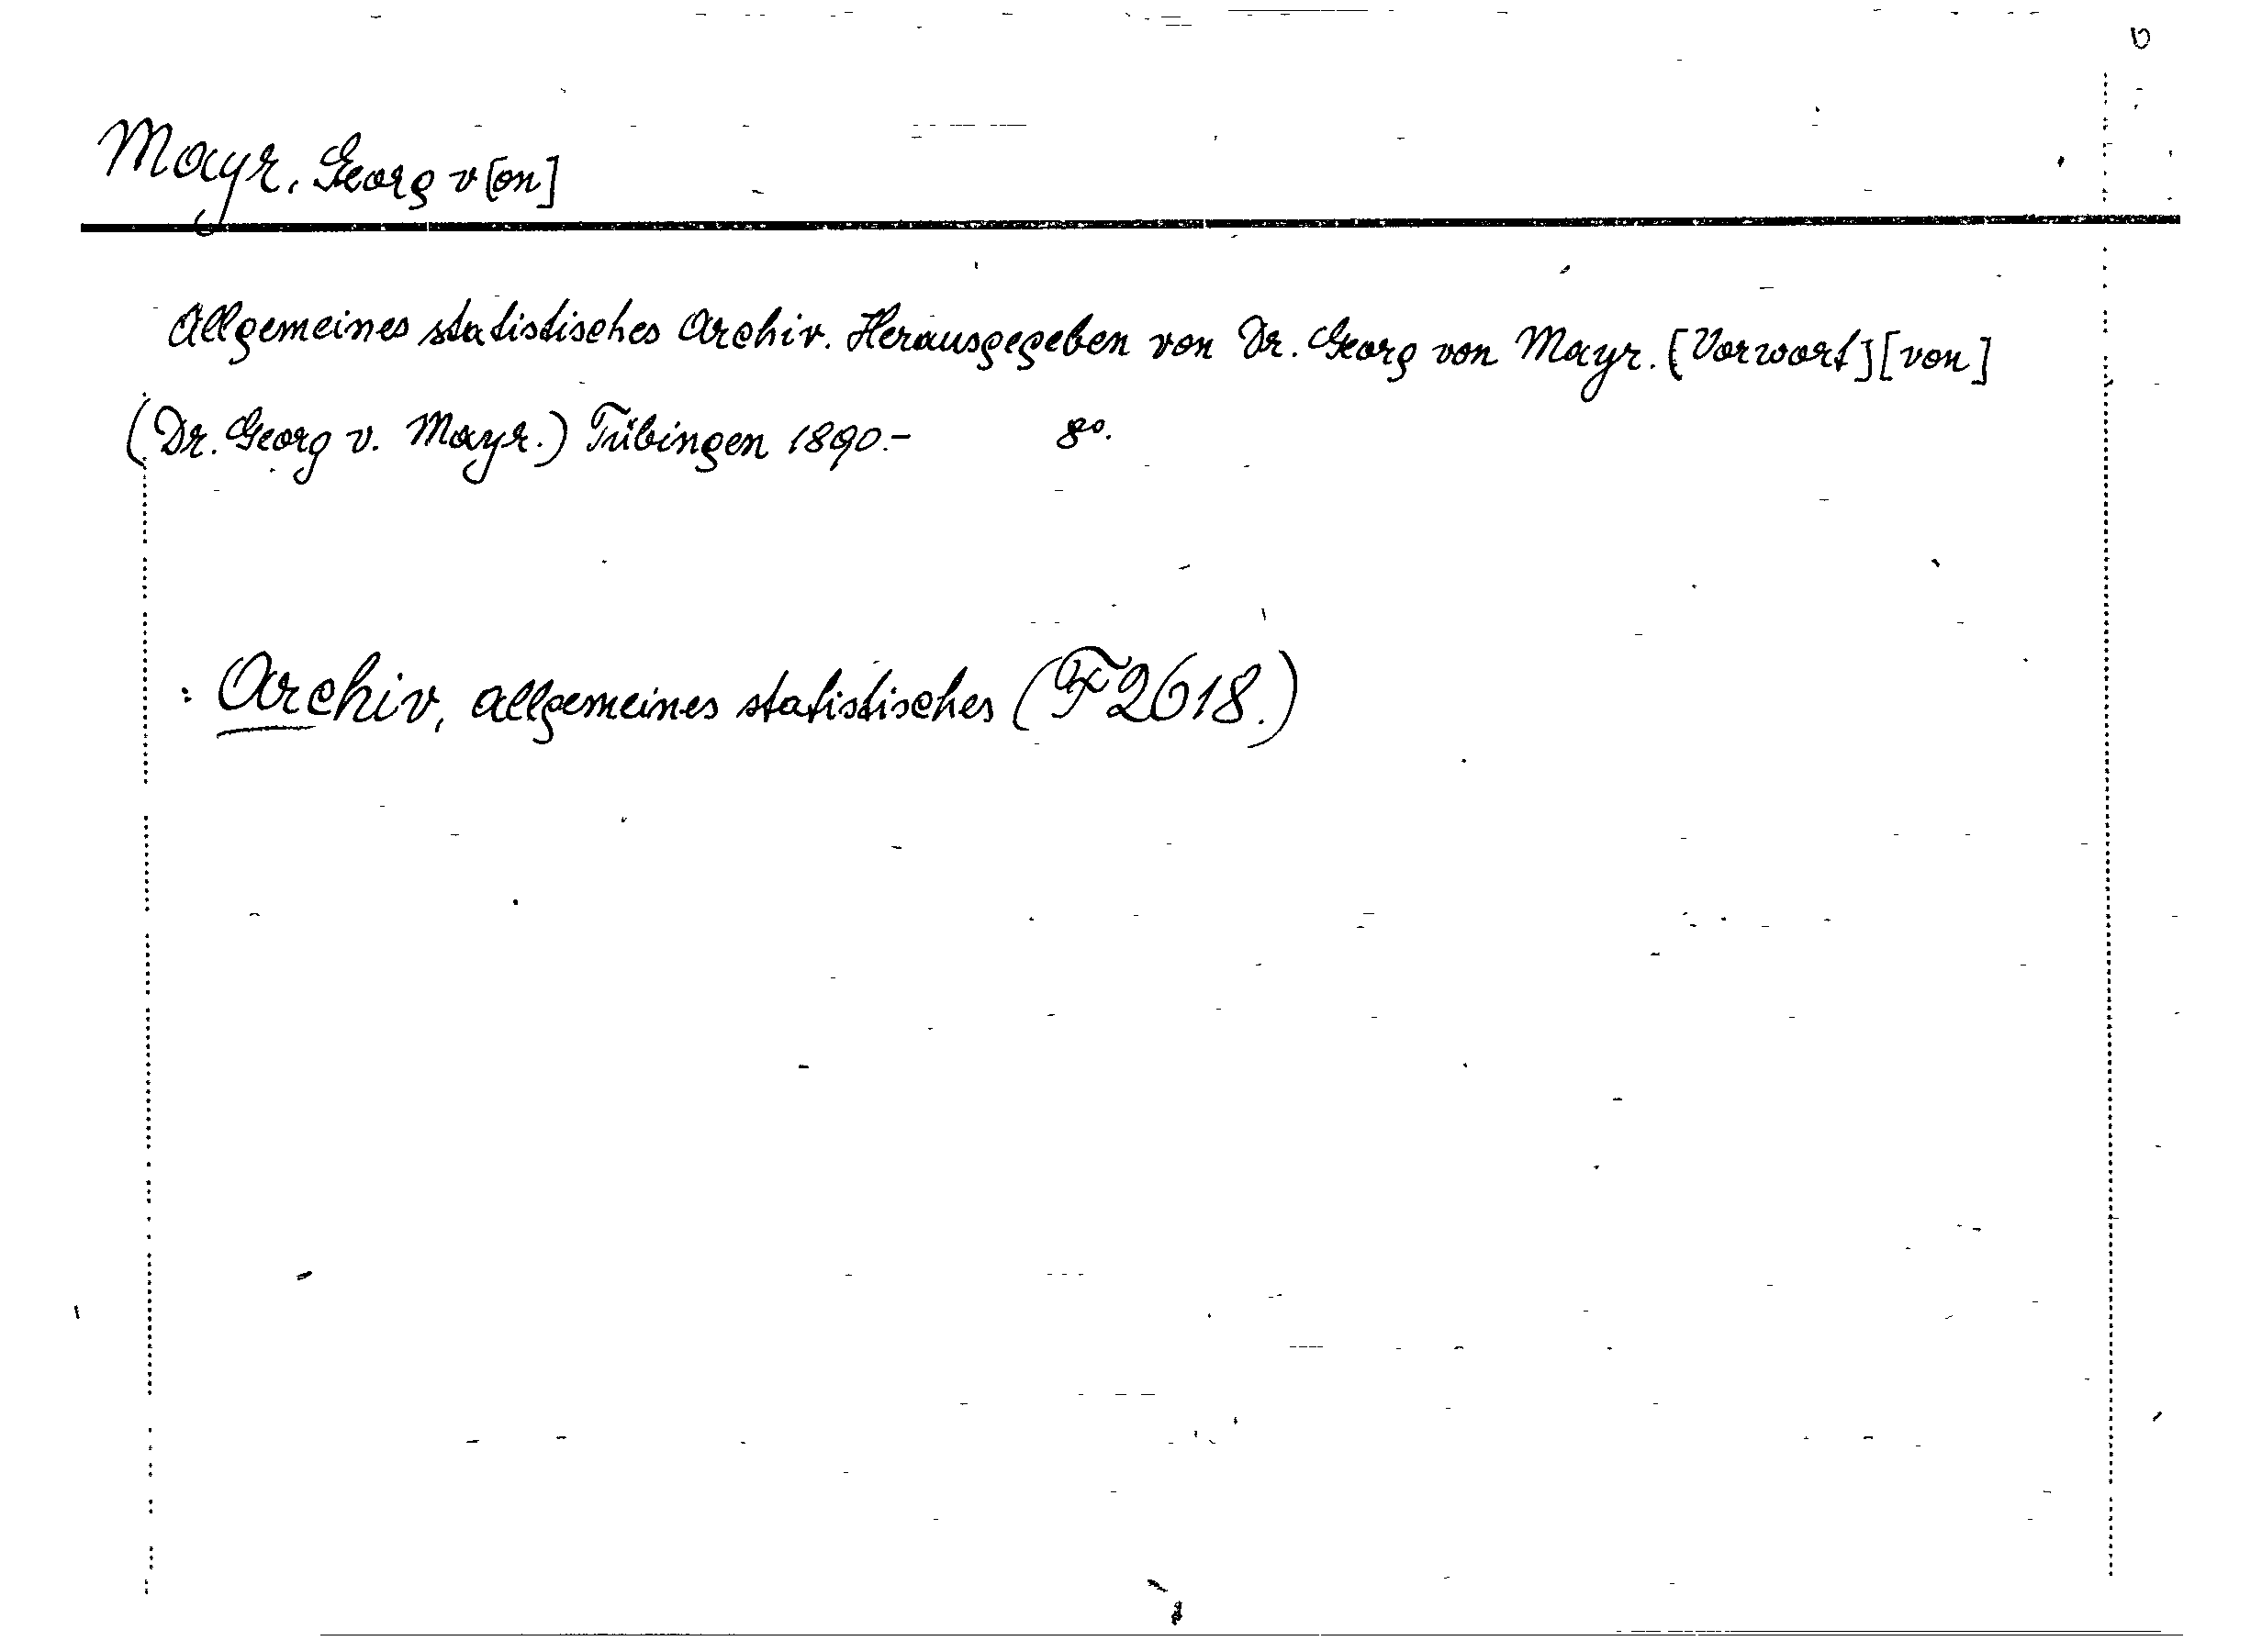 Mayr, Georg v[on]
Allgemeines statistisches Archiv. Herausgegeben von Dr. Georg von Mayr. [Vorwort][von]
(Dr. Georg v. Mayr.) Tübingen 1890.- 8°.
: Archiv, allgemeines statistisches (F 2618.)